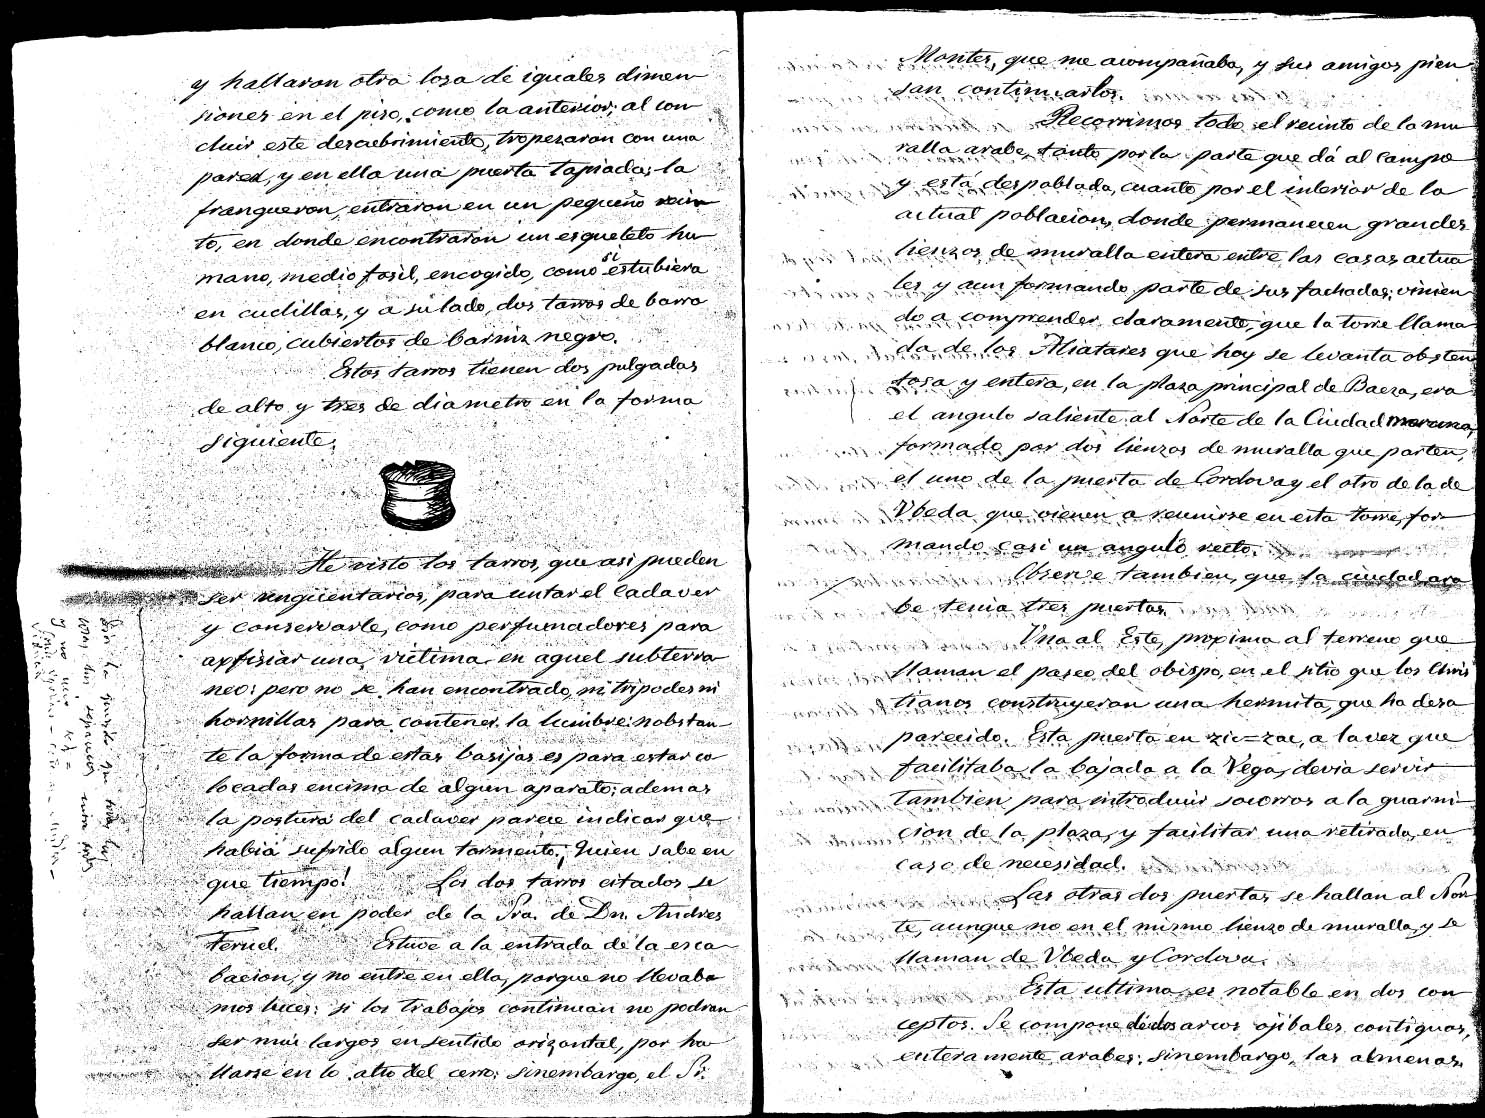 y hallaron otra losa de iguales dimen-
siones en el piso, como la anterior; al con-
cluir este descubrimiento, tropezaron con una
pared, y en ella una puerta tapiada; la
franqueron, entraron en un pequeño recin-
to, en donde encontraron un esqueleto hu-
mano, medio fosil, encogido, como si estubiera
en cuclillas, y a su lado, dos tarros de barro
blanco, cubiertos de barniz negro.
Estos tarros tienen dos pulgadas
de alto y tres de diametro en la forma
siguiente.
He visto los tarros, que asi pueden
ser ungüentarios, para untar el cadaver
y conservarle, como perfumadores para
asfisiar una victima en aquel subterra-
neo: pero no se han encontrado, ni tripodes ni
hornillas para contener la lumbre: nobstan-
te la forma de estas basijas es para estar co-
locadas encima de algun aparato; ademas
la postura del cadaver parece indicar que
habia sufrido algun tormento. ¡Quien sabe en
que tiempo! Los dos tarros citados se
hallan en poder de la Sra. de Dn. Andres
Teruel. Estuve a la entrada de la esca-
bacion, y no entre en ella, porque no llevaba-
mos luces: si los trabajos continuan no podran
ser mas largos en sentido orizontal, por ha-
llarse en lo alto del cerro; sinembargo, el Sr.
Montes, que me acompañaba, y sus amigos pien-
san continuarlos.
Recorrimos todo el recinto de la mu-
ralla arabe, tanto por la parte que dá al campo
y está despoblada, cuanto por el interior de la
actual poblacion, donde permanecen grandes
lienzos de muralla entera entre las casas actua-
les y aun formando parte de sus fachadas; vinien-
do a comprender claramente, que la torre llama-
da de los Aliatares que hoy se levanta obsten-
tosa y entera, en la plaza principal de Baeza, era
el angulo saliente al Norte de la Ciudad moruna,
formado por dos lienzos de muralla que parten,
el uno de la puerta de Cordova y el otro de la de
Vbeda que vienen a reunirse en esta torre, for-
mando casi un angulo recto.
Observe tambien, que la ciudad ara-
be tenia tres puertas.
Una al Este, proxima al terreno que
llaman el paseo del obispo, en el sitio que los Cris
tianos construyeron una hermita, que ha desa
parecido. Esta puerta en zic=zac, a la vez que
facilitaba la bajada a la Vega, devia servir
tambien para introducir socorros a la guarni-
cion de la plaza, y facilitar una retirada, en
caso de necesidad.
Las otras dos puertas se hallan al Nor-
te, aunque no en el mismo lienzo de muralla, y se
llaman de Vbeda y Cordova.
Esta ultima, es notable en dos con-
ceptos. Se compone de dos arcos ojibales contiguos,
enteramente arabes; sinembargo, las almenas,